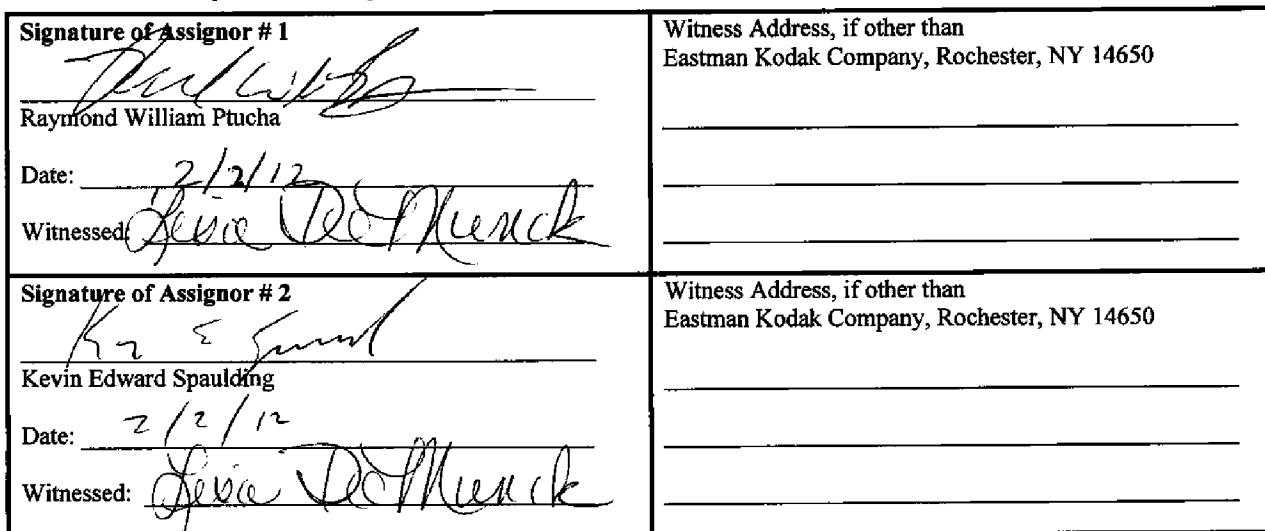 Signature of Assignor # 1
Raymond William Ptucha
Date: 2/2/12
Witnessed:
Witness Address, if other than
Eastman Kodak Company, Rochester, NY 14650
Signature of Assignor # 2
Kevin Edward Spaulding
Date: 2/2/12
Witnessed:
Witness Address, if other than
Eastman Kodak Company, Rochester, NY 14650